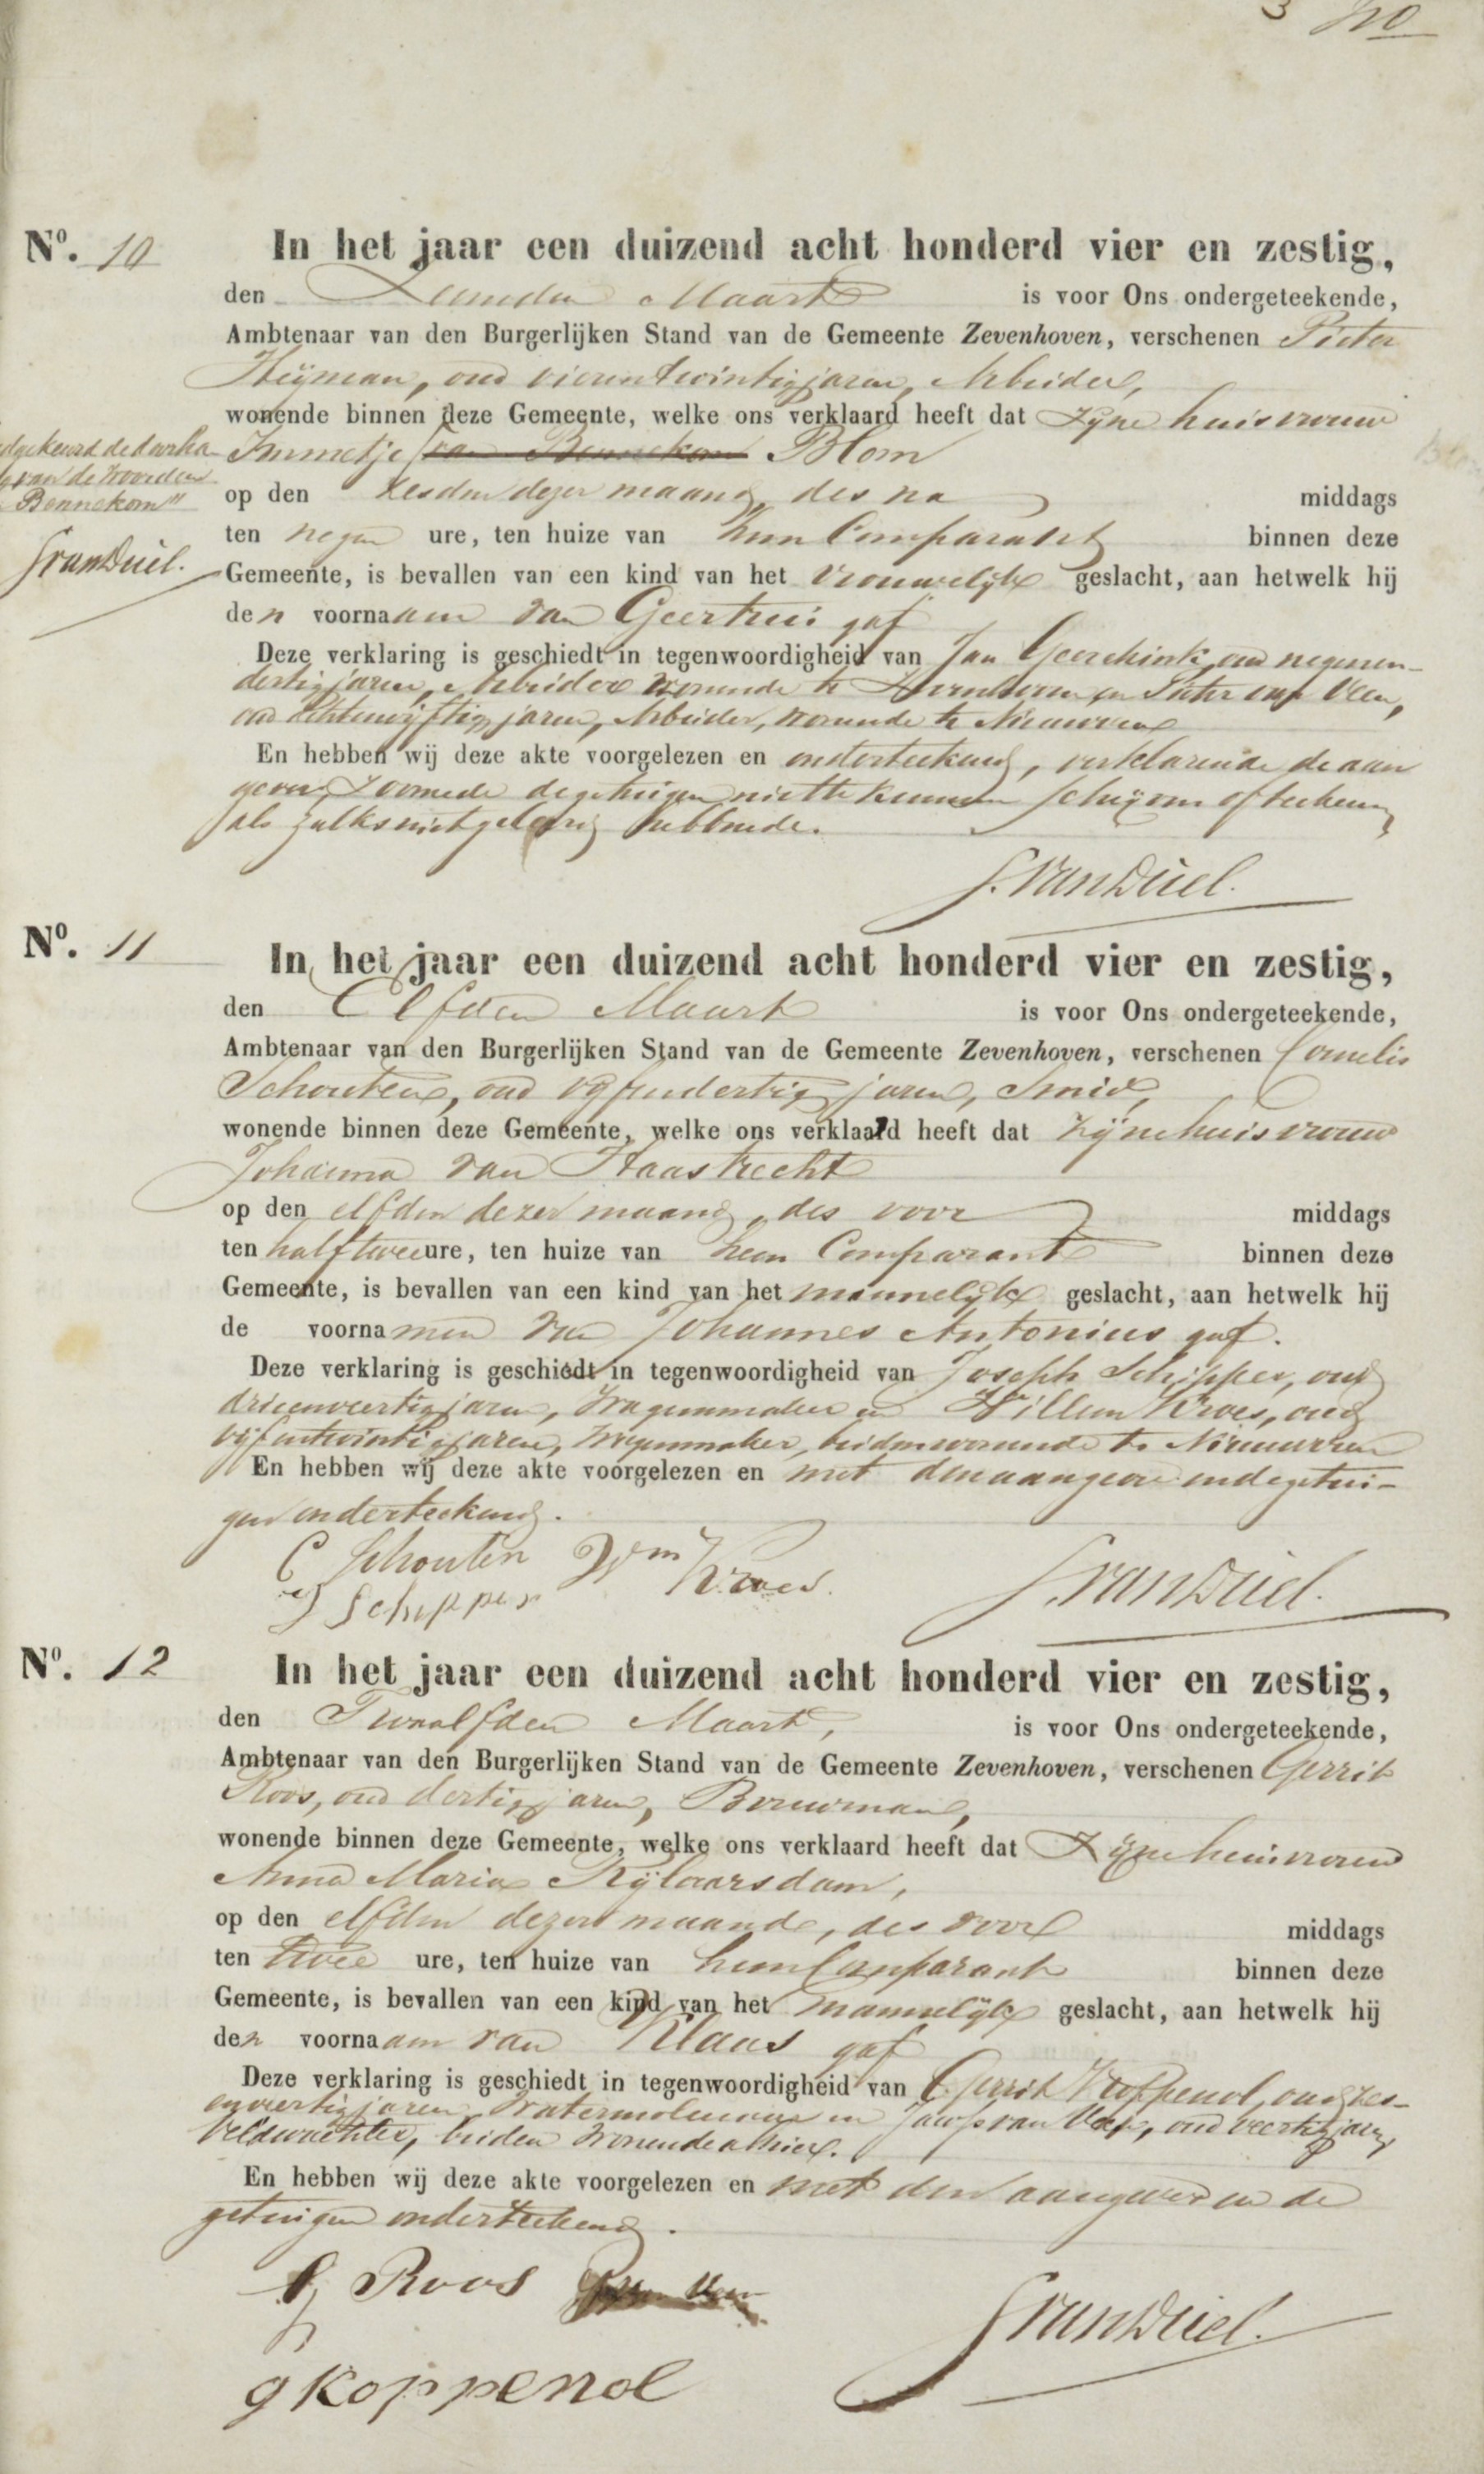 N°. 10
In het jaar een duizend acht honderd vier en zestig,
den Maart is voor Ons ondergeteekende,
Ambtenaar van den Burgerlijken Stand van de Gemeente Zevenhoven, verschenen Pieter
Heijman, oud vierentwintig jaren, Arbeider,
wonende binnen deze Gemeente, welke ons verklaard heeft dat zijne huisvrouw
Immetje van Bennekom Blom
van de woorden
Bennekom"
op den zesden dezer maand, des na middags
ten negen ure, ten huize van hem Comparant binnen deze
J van Duel.
Gemeente, is bevallen van een kind van het vrouwelijk geslacht, aan hetwelk hij
den voornaam van Geertrui gaf
Deze verklaring is geschiedt in tegenwoordigheid van Jan oud negenen-
dertig jaren, Arbeider wonende te en Pieter op Veen,
oud achtenvijftig jaren, Arbeider, wonende te Nieuwveen
En hebben wij deze akte voorgelezen en onderteekend, verklarende de aan
gever, zoomede de getuigen niet te kunnen schrijven of teekenen,
als zulks niet geleerd hebbende.
J. van Duel.
N°. 11
In het jaar een duizend acht honderd vier en zestig,
den Elfden Maart is voor Ons ondergeteekende,
Ambtenaar van den Burgerlijken Stand van de Gemeente Zevenhoven, verschenen Cornelis
Schouten, oud vijfendertig jaren, Smid,
wonende binnen deze Gemeente, welke ons verklaard heeft dat zijne huisvrouw
Johanna van Haastrecht
op den elfden dezer maand, des voor middags
ten half twee ure, ten huize van hem Comparant binnen deze
Gemeente, is bevallen van een kind van het mannelijk geslacht, aan hetwelk hij
de voornamen van Johannes Antonius gaf.
Deze verklaring is geschiedt in tegenwoordigheid van Joseph Schipper, oud
drieenveertig jaren, Wagenmaker en Willem Kroes, oud
vijfentwintig jaren, Wagenmaker, beiden wonende te Nieuwveen
En hebben wij deze akte voorgelezen en met den aangever en de getui-
gen onderteekend.
C Schouten Wm Kroes.
J Schipper
J. van Duel.
N°. 12
In het jaar een duizend acht honderd vier en zestig,
den Twaalfden Maart, is voor Ons ondergeteekende,
Ambtenaar van den Burgerlijken Stand van de Gemeente Zevenhoven, verschenen Gerrit
Roos, oud dertig jaren, Bouwman,
wonende binnen deze Gemeente, welke ons verklaard heeft dat zijne huisvrouw
Anna Maria Rijlaarsdam,
op den elfden dezer maand, des voor middags
ten twee ure, ten huize van hem Comparant binnen deze
Gemeente, is bevallen van een kind van het mannelijk geslacht, aan hetwelk hij
den voornaam van Klaas gaf
Deze verklaring is geschiedt in tegenwoordigheid van Gerrit Koppenol, oud zes-
enveertig jaren, Watermolenaar en van oud veertig jaren,
Veldwachter, beiden wonende alhier.
En hebben wij deze akte voorgelezen en met den aangever en de
getuigen onderteekend.
G Roos
J van Duel.
g koppenol